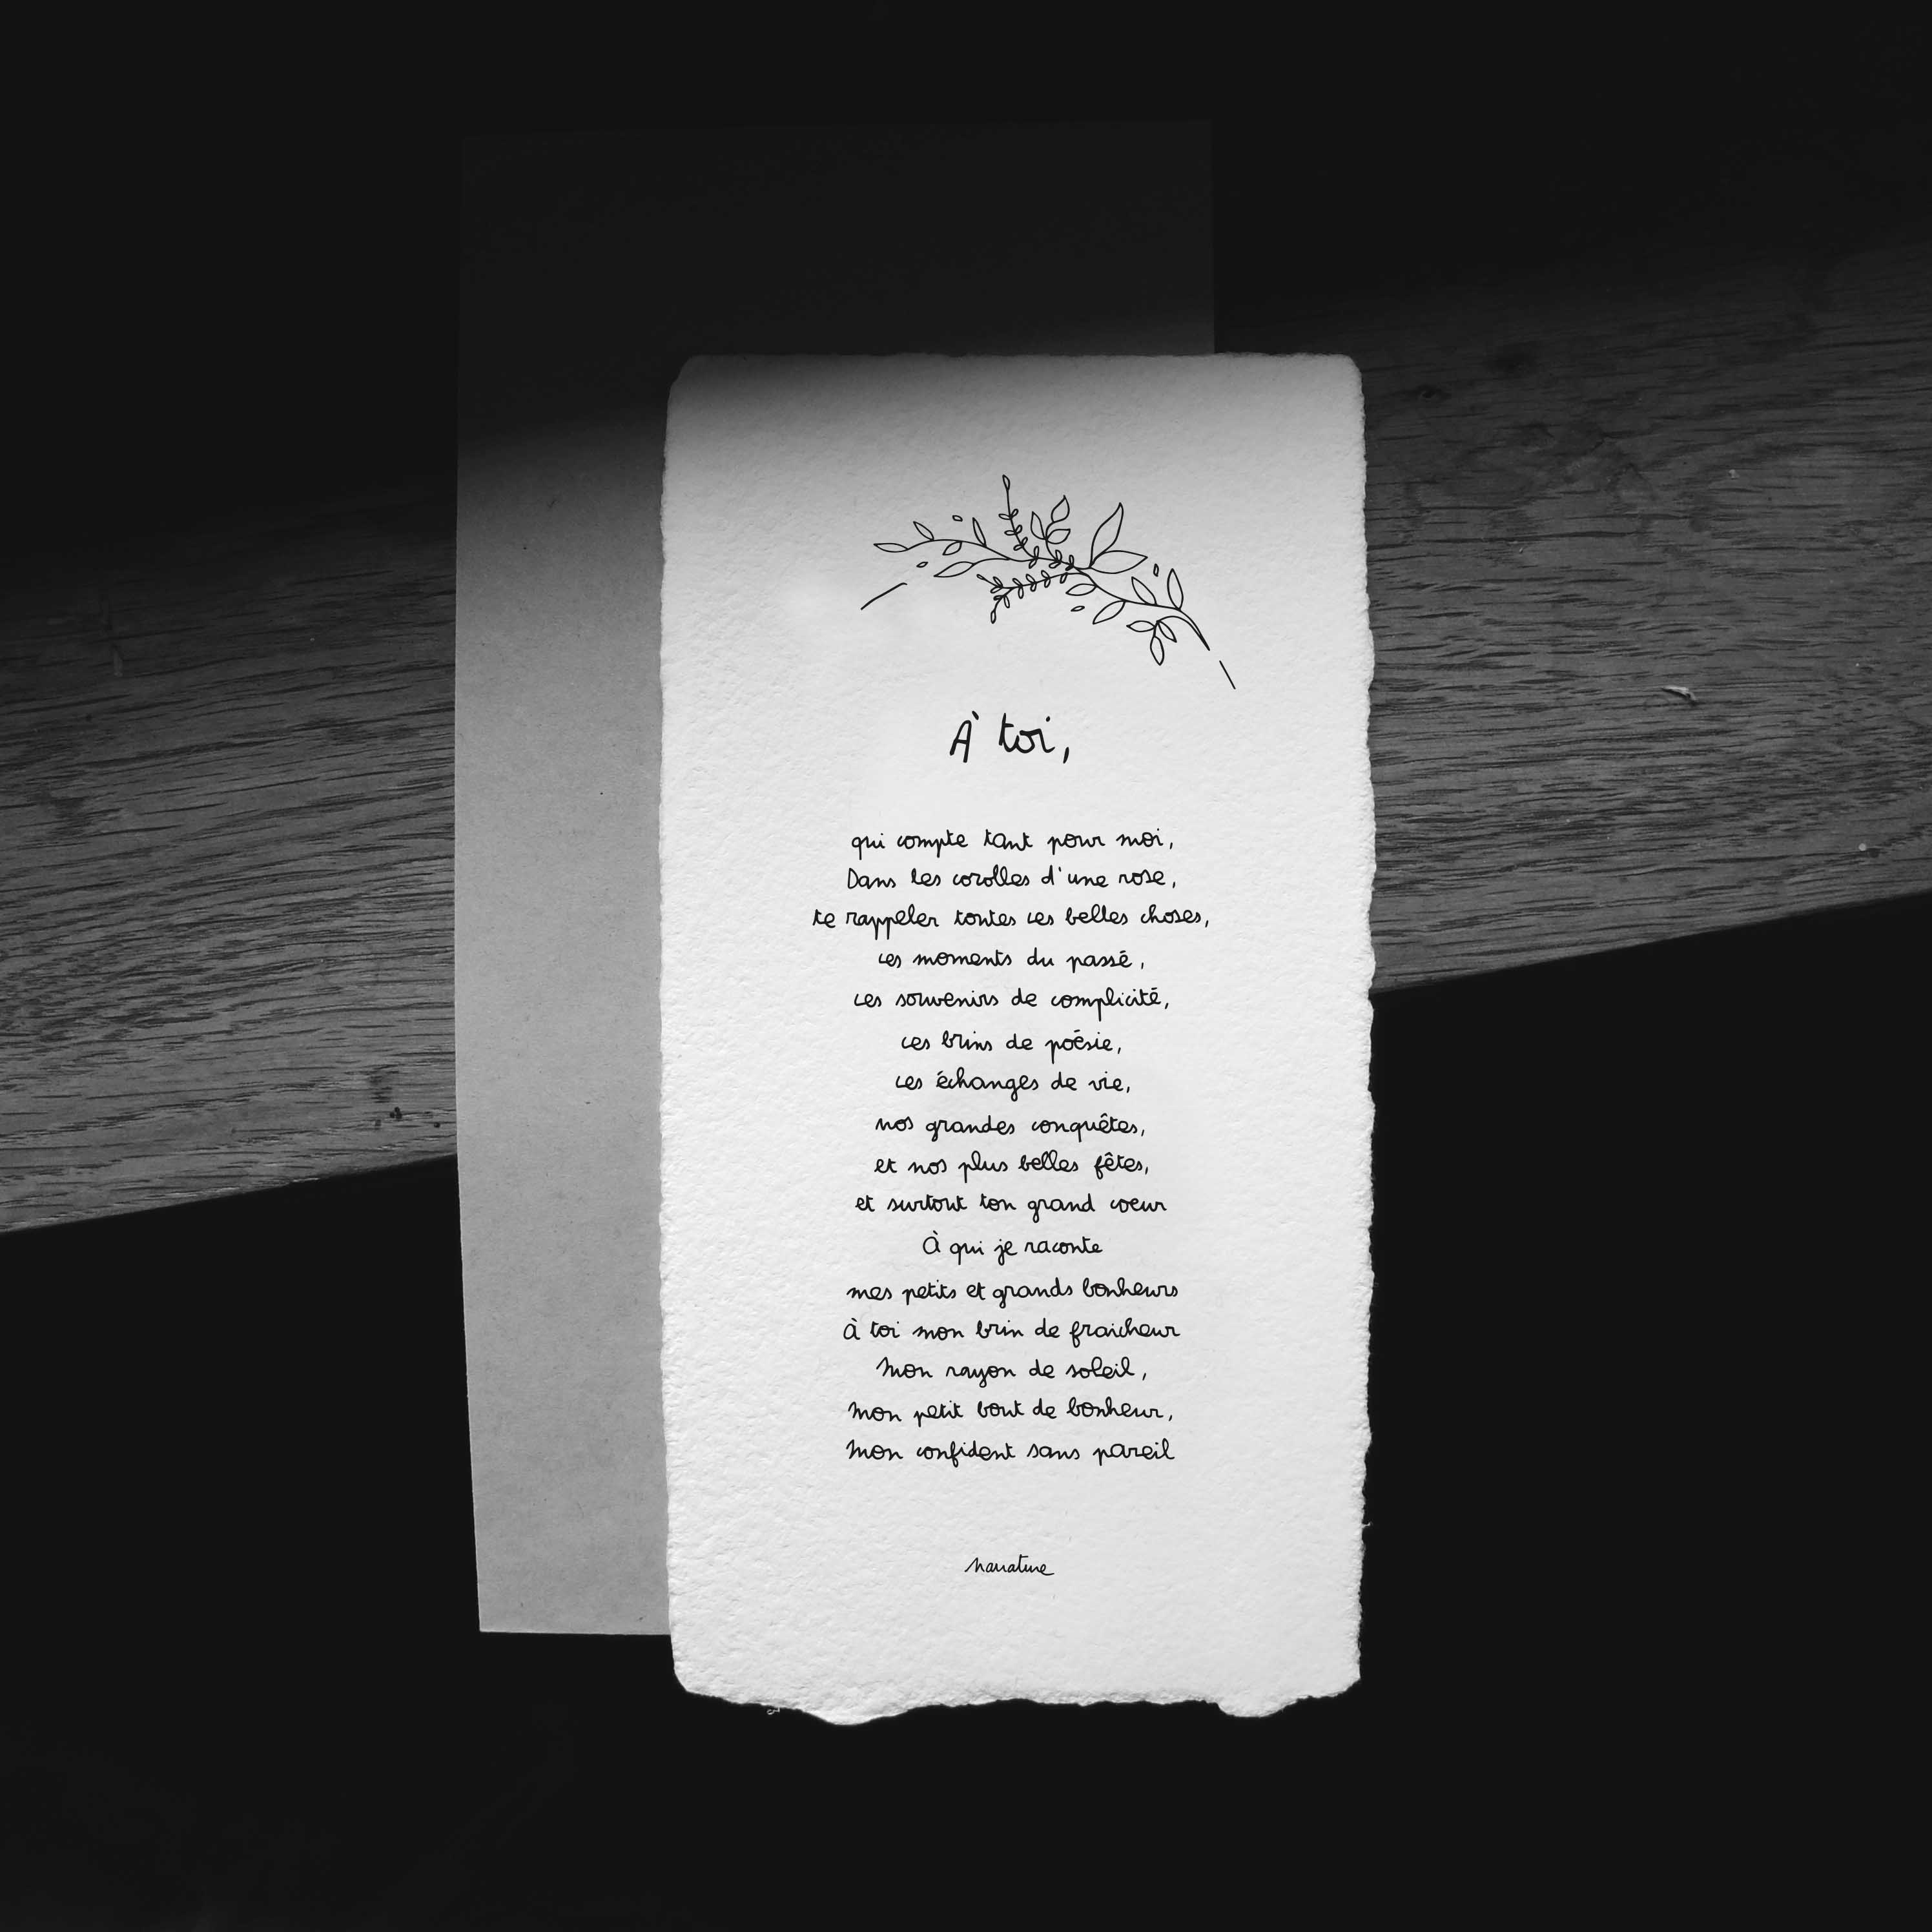 À toi,
qui compte tant pour moi,
Dans les corolles d'une rose,
te rappeler toutes ces belles choses,
ces moments du passé,
ces souvenirs de complicité,
ces brins de poésie,
ces échanges de vie,
nos grandes conquêtes,
et nos plus belles fêtes,
et surtout ton grand coeur
À qui je raconte
mes petits et grands bonheurs
À toi mon brin de fraicheur
Mon rayon de soleil,
Mon petit bout de bonheur,
Mon confident sans pareil